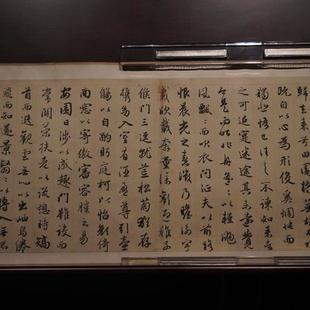 既自以心為形役奚惆悵而
獨悲悟已往之不諫知來者
之可追實迷途其未遠覺
今是而昨非舟遙遙以輕颺
風飄飄而吹衣問征夫以前路
恨晨光之熹微乃瞻衡宇
載欣載奔僮僕歡迎稚子
候門三逕就荒松菊猶存
攜幼入室有酒盈尊引壺
觴以自酌眄庭柯以怡顏倚
南窗以寄傲審容膝之易
安園日涉以成趣門雖設而
常關策扶老以流憩時矯
首而遐觀雲無心以出岫鳥倦
飛而知還景翳翳以將入